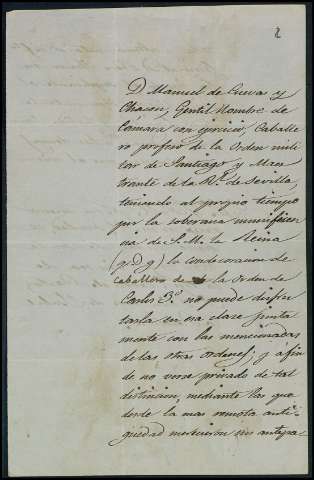 2
D. Manuel de Cuevas y
Chacon, Gentil Hombre de
Camara con ejercicio, Caballe
ro profeso de la Orden mili
tar de Santiago y Maes
trante de la Rl. de Sevilla,
teniendo al propio tiempo
por la soberana munificen
cia de S. M. la Reina
(q. D. g) la condecoracion de
caballero de la Orden de
Carlos 3.º no puede disfru
tarla en esa clase junta
mente con las mencionadas
de las otras ordenes; y á fin
de no verse privado de tal
distincion, mediante las que
desde la mas remota anti
güedad merecieron sus antepa